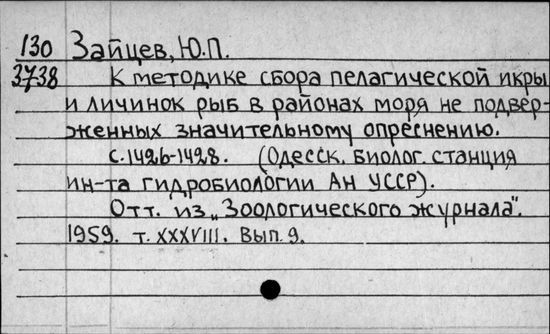 130 Зайцев, Ю.П.
3738 К методике сбора пелагической икры
и личинок рыб в районах моря не подвер-
женных значительному опреснению.
с. 1426-1428. (Одесск. биолог. станция
ин-та гидробиологии Ан УССР).
Отт. из „Зоологического журнала".
1959. т. XXXVIII. Вып. 9.